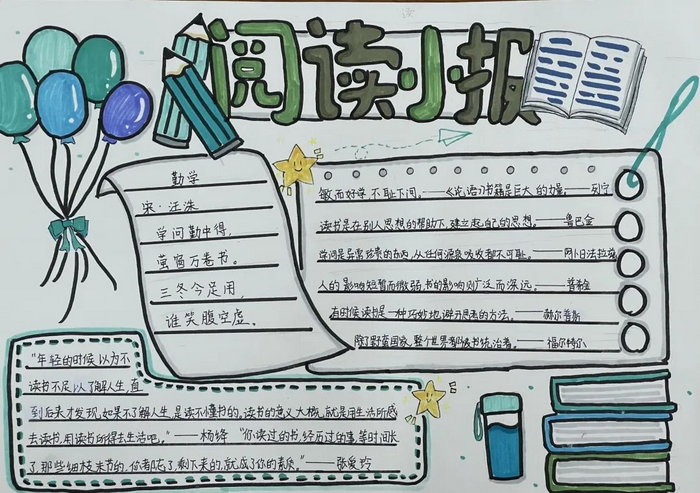 阅读小报
勤学
宋·汪洙
学问勤中得,
萤窗万卷书。
三冬今足用,
谁笑腹空虚。
敏而好学,不耻下问。——《论语》书籍是巨大的力量。——列宁
读书是在别人思想的帮助下,建立起自己的思想。——鲁巴金
学问是异常珍贵的东西,从任何源泉吸收都不可耻。——阿卜日法拉兹
人的影响短暂而微弱,书的影响则广泛而深远。——普希金
有时候读书是一种巧妙地避开思考的方法。——赫尔普斯
除了野蛮国家,整个世界都被书统治着。——福尔特尔
"年轻的时候以为不
读书不足以了解人生,直
到后来才发现,如果不了解人生,是读不懂书的。读书的意义大概就是用生活所感
去读书,用读书所得去生活吧。"——杨绛 "你读过的书,经历过的事,等时间长
了,那些细枝末节的,你都忘了,剩下来的,就成了你的素质。"——张爱玲